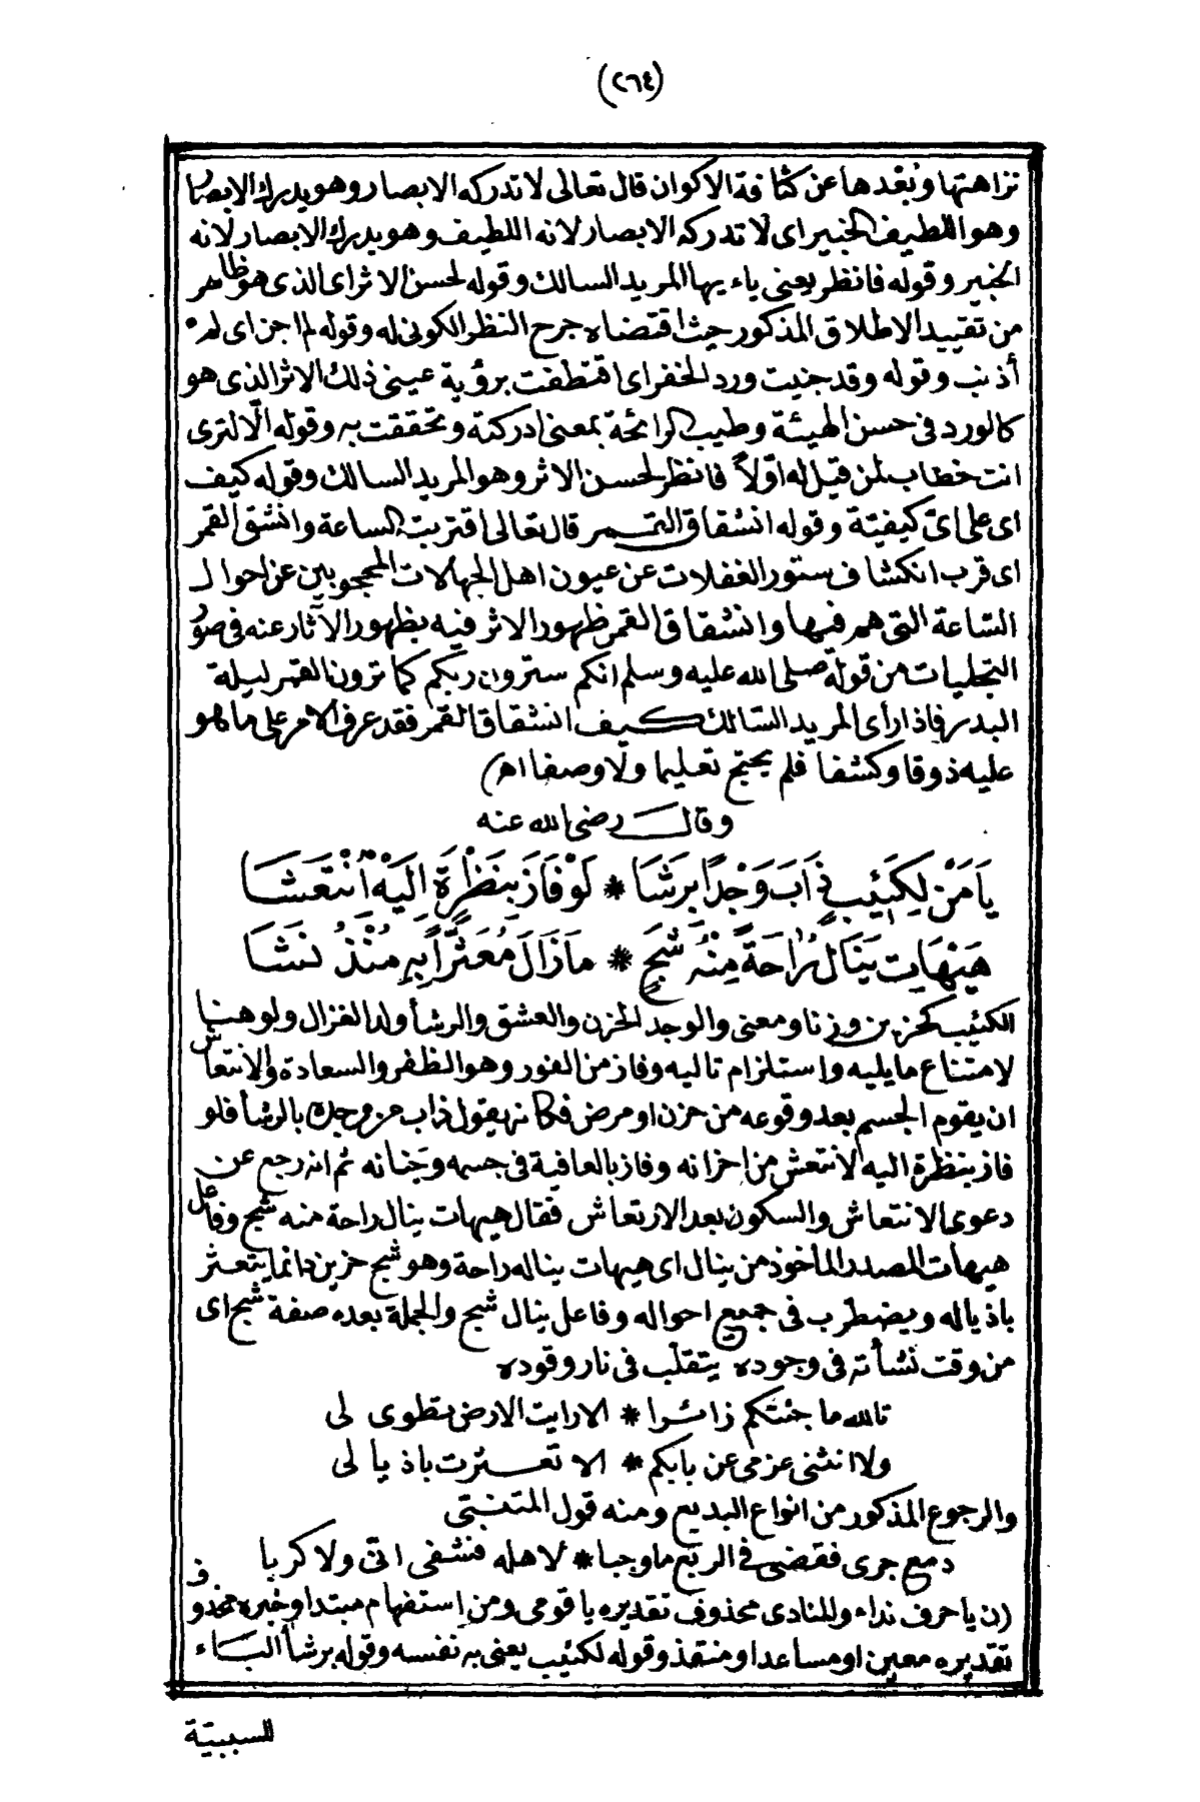 (٢٦٤)
نزاهتها وبعدها عن كثافة الاكوان قال تعالى لا تدركه الابصار وهو يدرك الابصار
وهو اللطيف الخبير اى لا تدركه الابصار لانه اللطيف وهو يدرك الابصار لانه
الخبير وقوله فانظر يعنى ياء يها المريد السالك وقوله لحسن الاثر اى الذى هو ظاهر
من تقييد الاطلاق المذكور حيث اقتضاه جرح النظر الكونى له وقوله لم اجن اى لم
أذنب وقوله وقد جنيت ورد الخفر اى اقتطفت برؤية عينى ذلك الاثر الذى هو
كالورد فى حسن الهيئة وطيب الرائحة بمعنى ادركته وتحققت به وقوله الّا لترى
انت خطاب لمن قيل له اوّلاً فانظر لحسن الاثر وهو المريد السالك وقوله كيف
اى على اىّ كيفيّة وقوله انشقاق القمر قال تعالى اقتربت الساعة وانشق القمر
اى قرب انكشاف ستور الغفلات عن عيون اهل الجهالات المحجوبين عن احوال
السّاعة التى هم فيها وانشقاق القمر ظهور الاثر فيه بظهور الآثار عنه فى صوَر
التجليات من قوله صلى الله عليه وسلم انكم سترون ربكم كما ترون القمر ليلة
البدر فاذا رأى المريد السّالك كيف انشقاق القمر فقد عرف الامر على ما هو
عليه ذوقا وكشفا فلم يحتج تعليما ولا وصفا اهـ)
وقال رضى الله عنه
يَا مَنْ لِكَئِيبٍ ذَابَ وَجْدًا بِرَشَا * لَوْ فَازَ بِنَظْرَةٍ اِلَيْهِ انْتَعَشَا
هَيْهَاتِ يَنَالُ رَاحَةً مِنْهُ شَجٍ * مَا زَالَ مُعَثَّرًا بِهِ مُنْذُ نَشَا
الكئيب كحزين وزنا ومعنى والوجد الحزن والعشق والرشأ ولد الغزال ولو هنا
لامتناع ما يليه واستلزام تاليه وفاز من الفوز وهو الظفر والسعادة والانتعاش
ان يقوم الجسم بعد وقوعه من حزن او مرض فكانه يقول ذاب من وجده بالرشأ فلو
فاز بنظرة اليه لانتعش من احزانه وفاز بالعافية فى جسمه وجَنانه ثم انه رجع عن
دعوى الانتعاش والسكون بعد الارتعاش فقال هيهات ينال راحة منه شج وفاعل
هيهات المصدر المأخوذ من ينال اى هيهات يناله راحة وهو شج حزين دائما يتعثر
باذياله ويضطرب فى جميع احواله وفاعل ينال شج والجملة بعده صفة شج اى
من وقت نشأته فى وجوده يتقلّب فى نار وقوده
تالله ما جئتكم زائرا * الا رايت الارض تطوى لى
ولا انثنى عزمى عن بابكم * الا تعثرت باذيالى
والرجوع المذكور من انواع البديع ومنه قول المتنبّى
دمع جرى فقضى فى الربع ما وجبا * لاهله فشفى انّى ولا كربا
(ن يا حرف نداء والمنادى محذوف تقديره يا قومى ومن إستفهام مبتدا وخبره محذوف
تقديره معين او مساعد او منقذ وقوله لكئيب يعنى به نفسه وقوله برشأ البَاء
للسببيّة